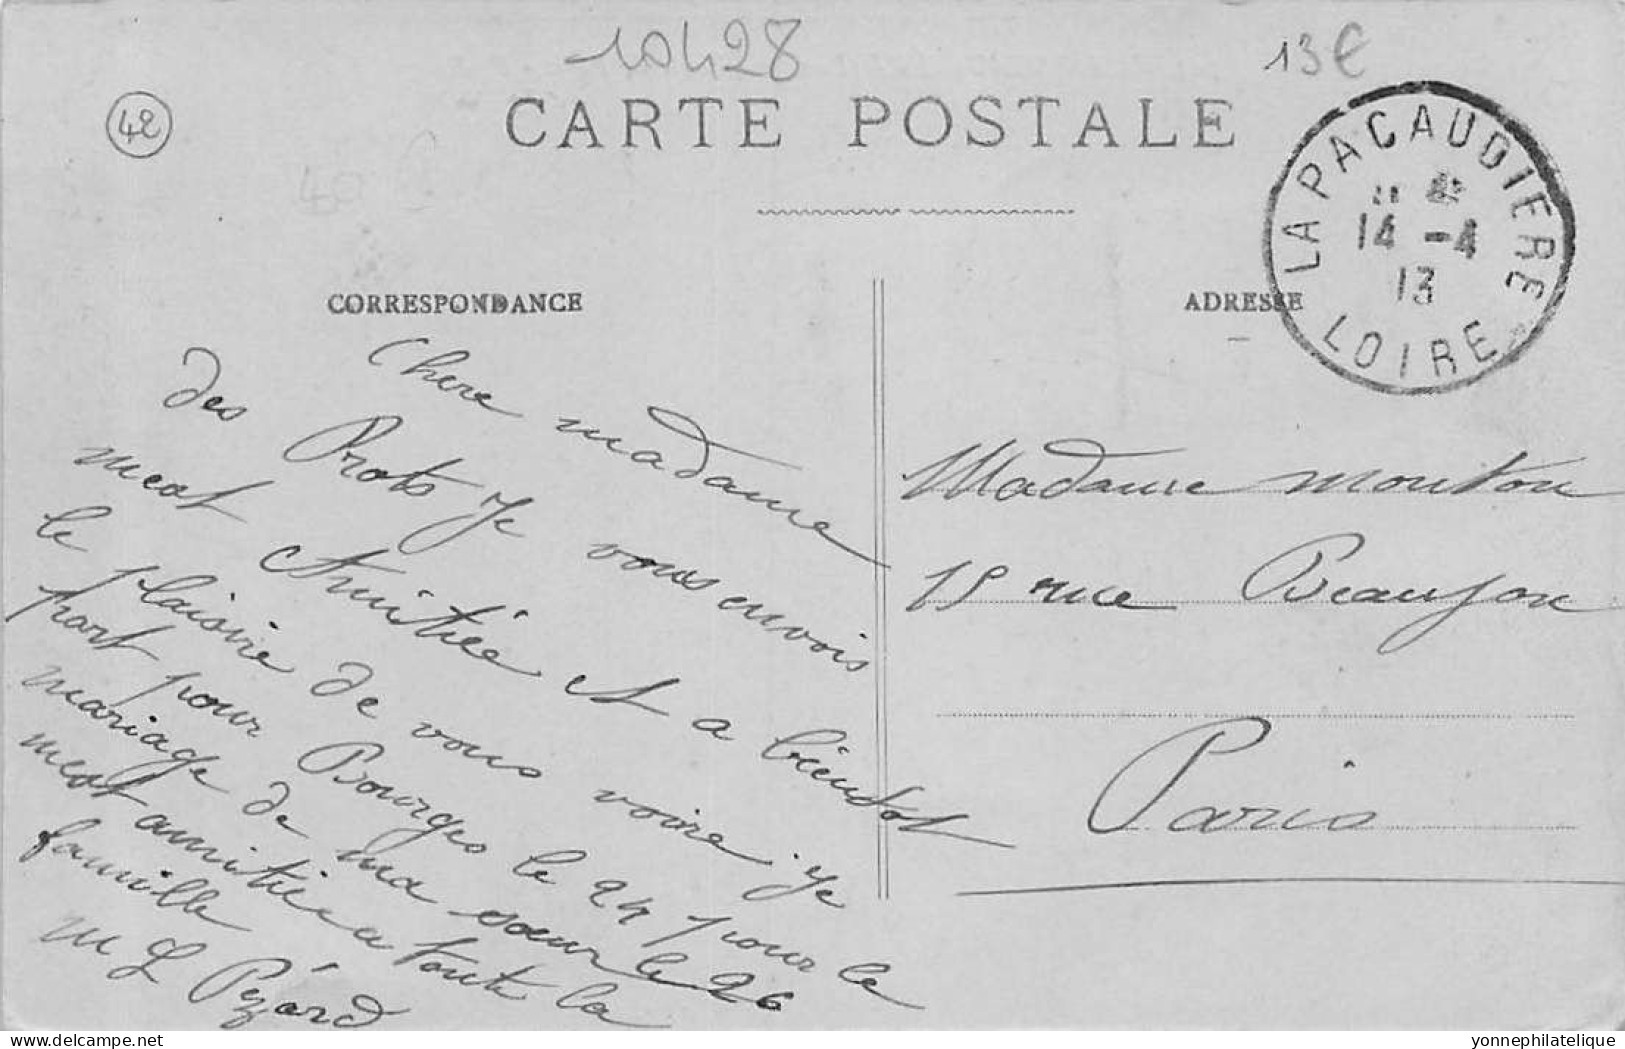 10428
13€
42
CARTE POSTALE
LA PACAUDIERE
14 -4
13
LOIRE
CORRESPONDANCE
ADRESSE
Chere madame
des Prots je vous envois
meot Amitiée et a bientot
le plaisire de vous voire je
part pour Bourges le 24 pour le
mariage de ma sœur le 26
meot amitiée a toute la
famille
M L Pezard
Madame Mouton
15 rue Beaujon
Paris
yonnephilatelique.delcampe.net